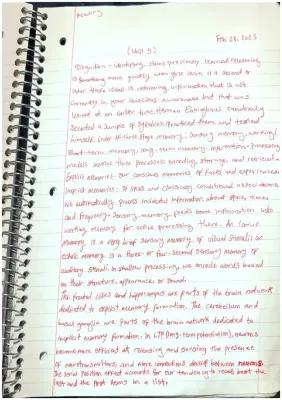 Reading
Feb 28, 2023
(Unit 5)
Recognition - identifying items previously learned relearning
is something more quickly when you learn it a second or
later time. recall is retrieving information that is not
currently in your conscious awareness but that was
learned at an earlier time. Herman Ebbinghaus randomly
selected a sample of syllables, practiced them and tested
himself. Order of three stage memory: Sensory memory, working/
short-term memory, long-term memory. information-processing
models involve three processes encoding, storage, and retrieval.
Explicit memories: our conscious memories of facts and experiences.
implicit memories: of skills and classically conditioned associations.
We automatically process incidental information about space, time,
and frequency. Sensory memory feeds some information into
working memory for active processing there. An iconic
Memory is a very brief sensory memory of visual stimuli; an
echoic memory is a three- or four-second sensory memory of
auditory stimuli. In shallow processing, we encode words based
on their structure, appearance, or sound.
The frontal lobes and hippocampus are parts of the brain network
dedicated to explicit memory formation. The cerebellum and
basal ganglia are parts of the brain network dedicated to
implicit memory formation. In LTP (long-term potentiation), neurons
become more efficient at releasing and sensing the presence
of neurotransmitters and more connections develop between neurons.
The serial position effect accounts for our tendency to recall best the
last and the first items in a list,